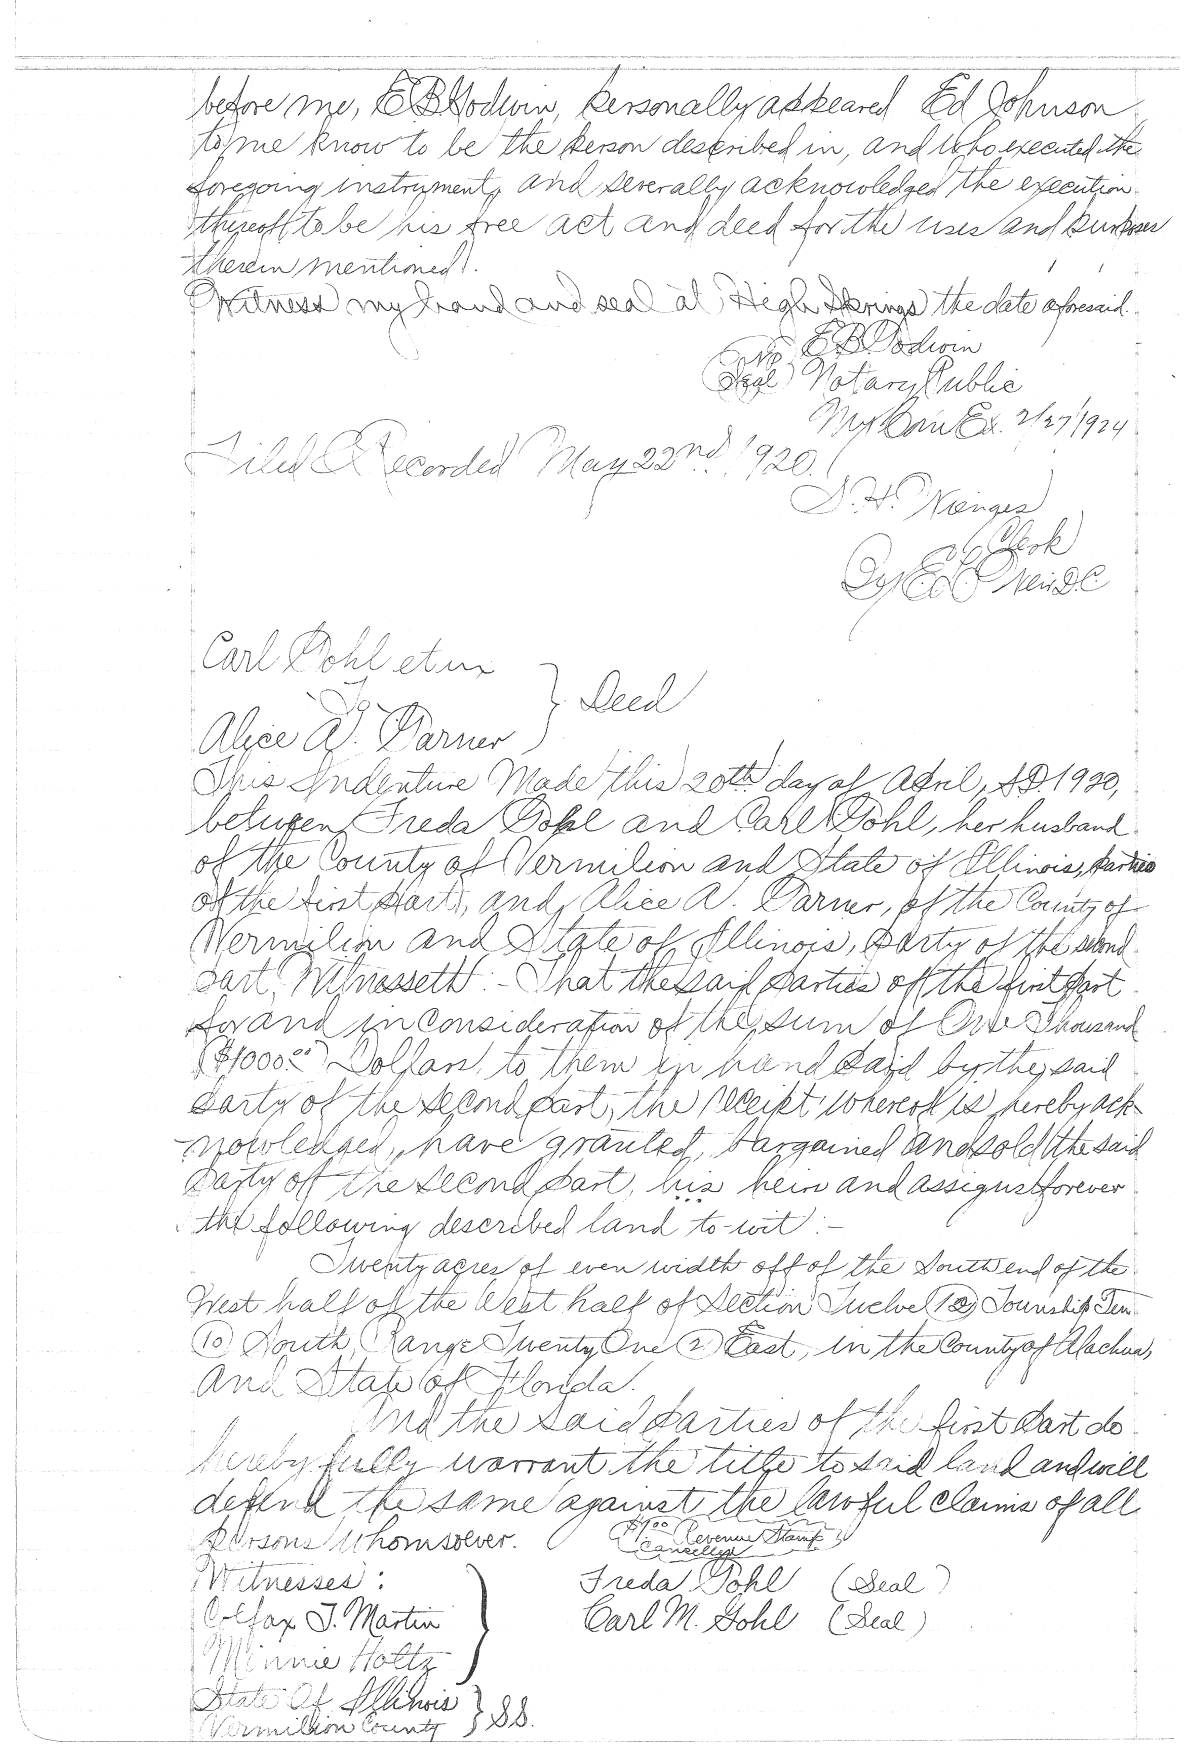 before me, E B Godwin, personally appeared Ed Johnson
to me know to be the person described in, and who executed the
foregoing instrument, and severally acknowledged the execution
thereof to be his free act and deed for the uses and purposes
therein mentioned.
Witness my hand and seal at High Springs the date aforesaid.
E B Godwin
(N P Seal) Notary Public
My Com Ex. 2/27/1924
Filed & Recorded May 22nd, 1920.
S. H. Wienges
Clerk
By E D.C
Carl Gohl et ux
To } Deed
Alice A. Garner
This Indenture Made this 20th day of April, A.D. 1920,
between Freda Gohl and Carl Gohl, her husband
of the County of Vermilion and State of Illinois, parties
of the first part, and Alice A. Garner, of the County of
Vermilion and State of Illinois, party of the second
part, Witnesseth:- That the said parties of the first part
for and in consideration of the sum of One Thousand
($1000.00) Dollars, to them in hand paid by the said
party of the second part, the receipt whereof is hereby ack-
nowledged, have granted, bargained and sold the said
party off the second part, his heirs and assigns forever
the following described land to-wit:-
Twenty acres of even width off of the South end of the
West half of the West half of Section Twelve (12) Township Ten
(10) South, Range Twenty One (21) East, in the County of Alachua,
and State of Florida.
And the said parties of the first part do
hereby fully warrant the title to said land and will
defend the same against the lawful claims of all
persons whomsoever.
($1.00 Revenue Stamp
Cancelled)
Witnesses: Freda Gohl (Seal)
Colfax T. Martin } Carl M. Gohl (Seal)
Minnie Holtz
State Of Illinois
Vermilion County } SS.